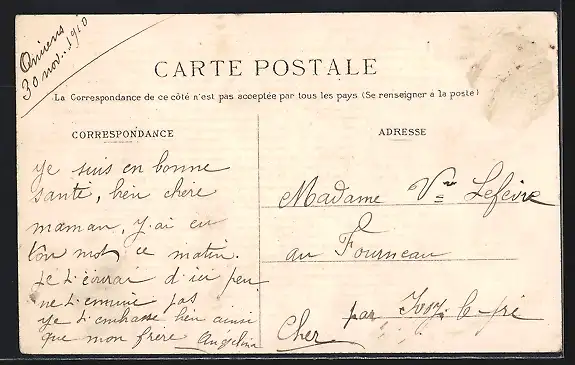 Amiens
30 nov. 1910
CARTE POSTALE
La Correspondance de ce côté n'est pas acceptée par tous les pays (Se renseigner à la poste)
CORRESPONDANCE
Je suis en bonne
santé, bien chère
maman, J'ai eu
ton mot ce matin.
Je t'écrirai d'ici peu
ne t'ennuie pas
Je t'embrasse bien ainsi
que mon frère Angelina
ADRESSE
Madame Vve Lefèvre
au Fourneau
par Ivoy-le-pré
Cher